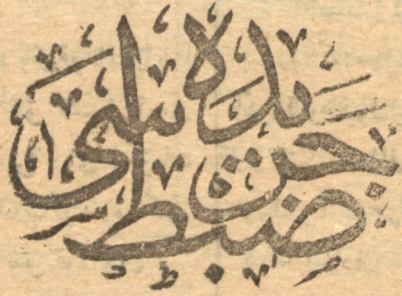 ضبط جريده سى